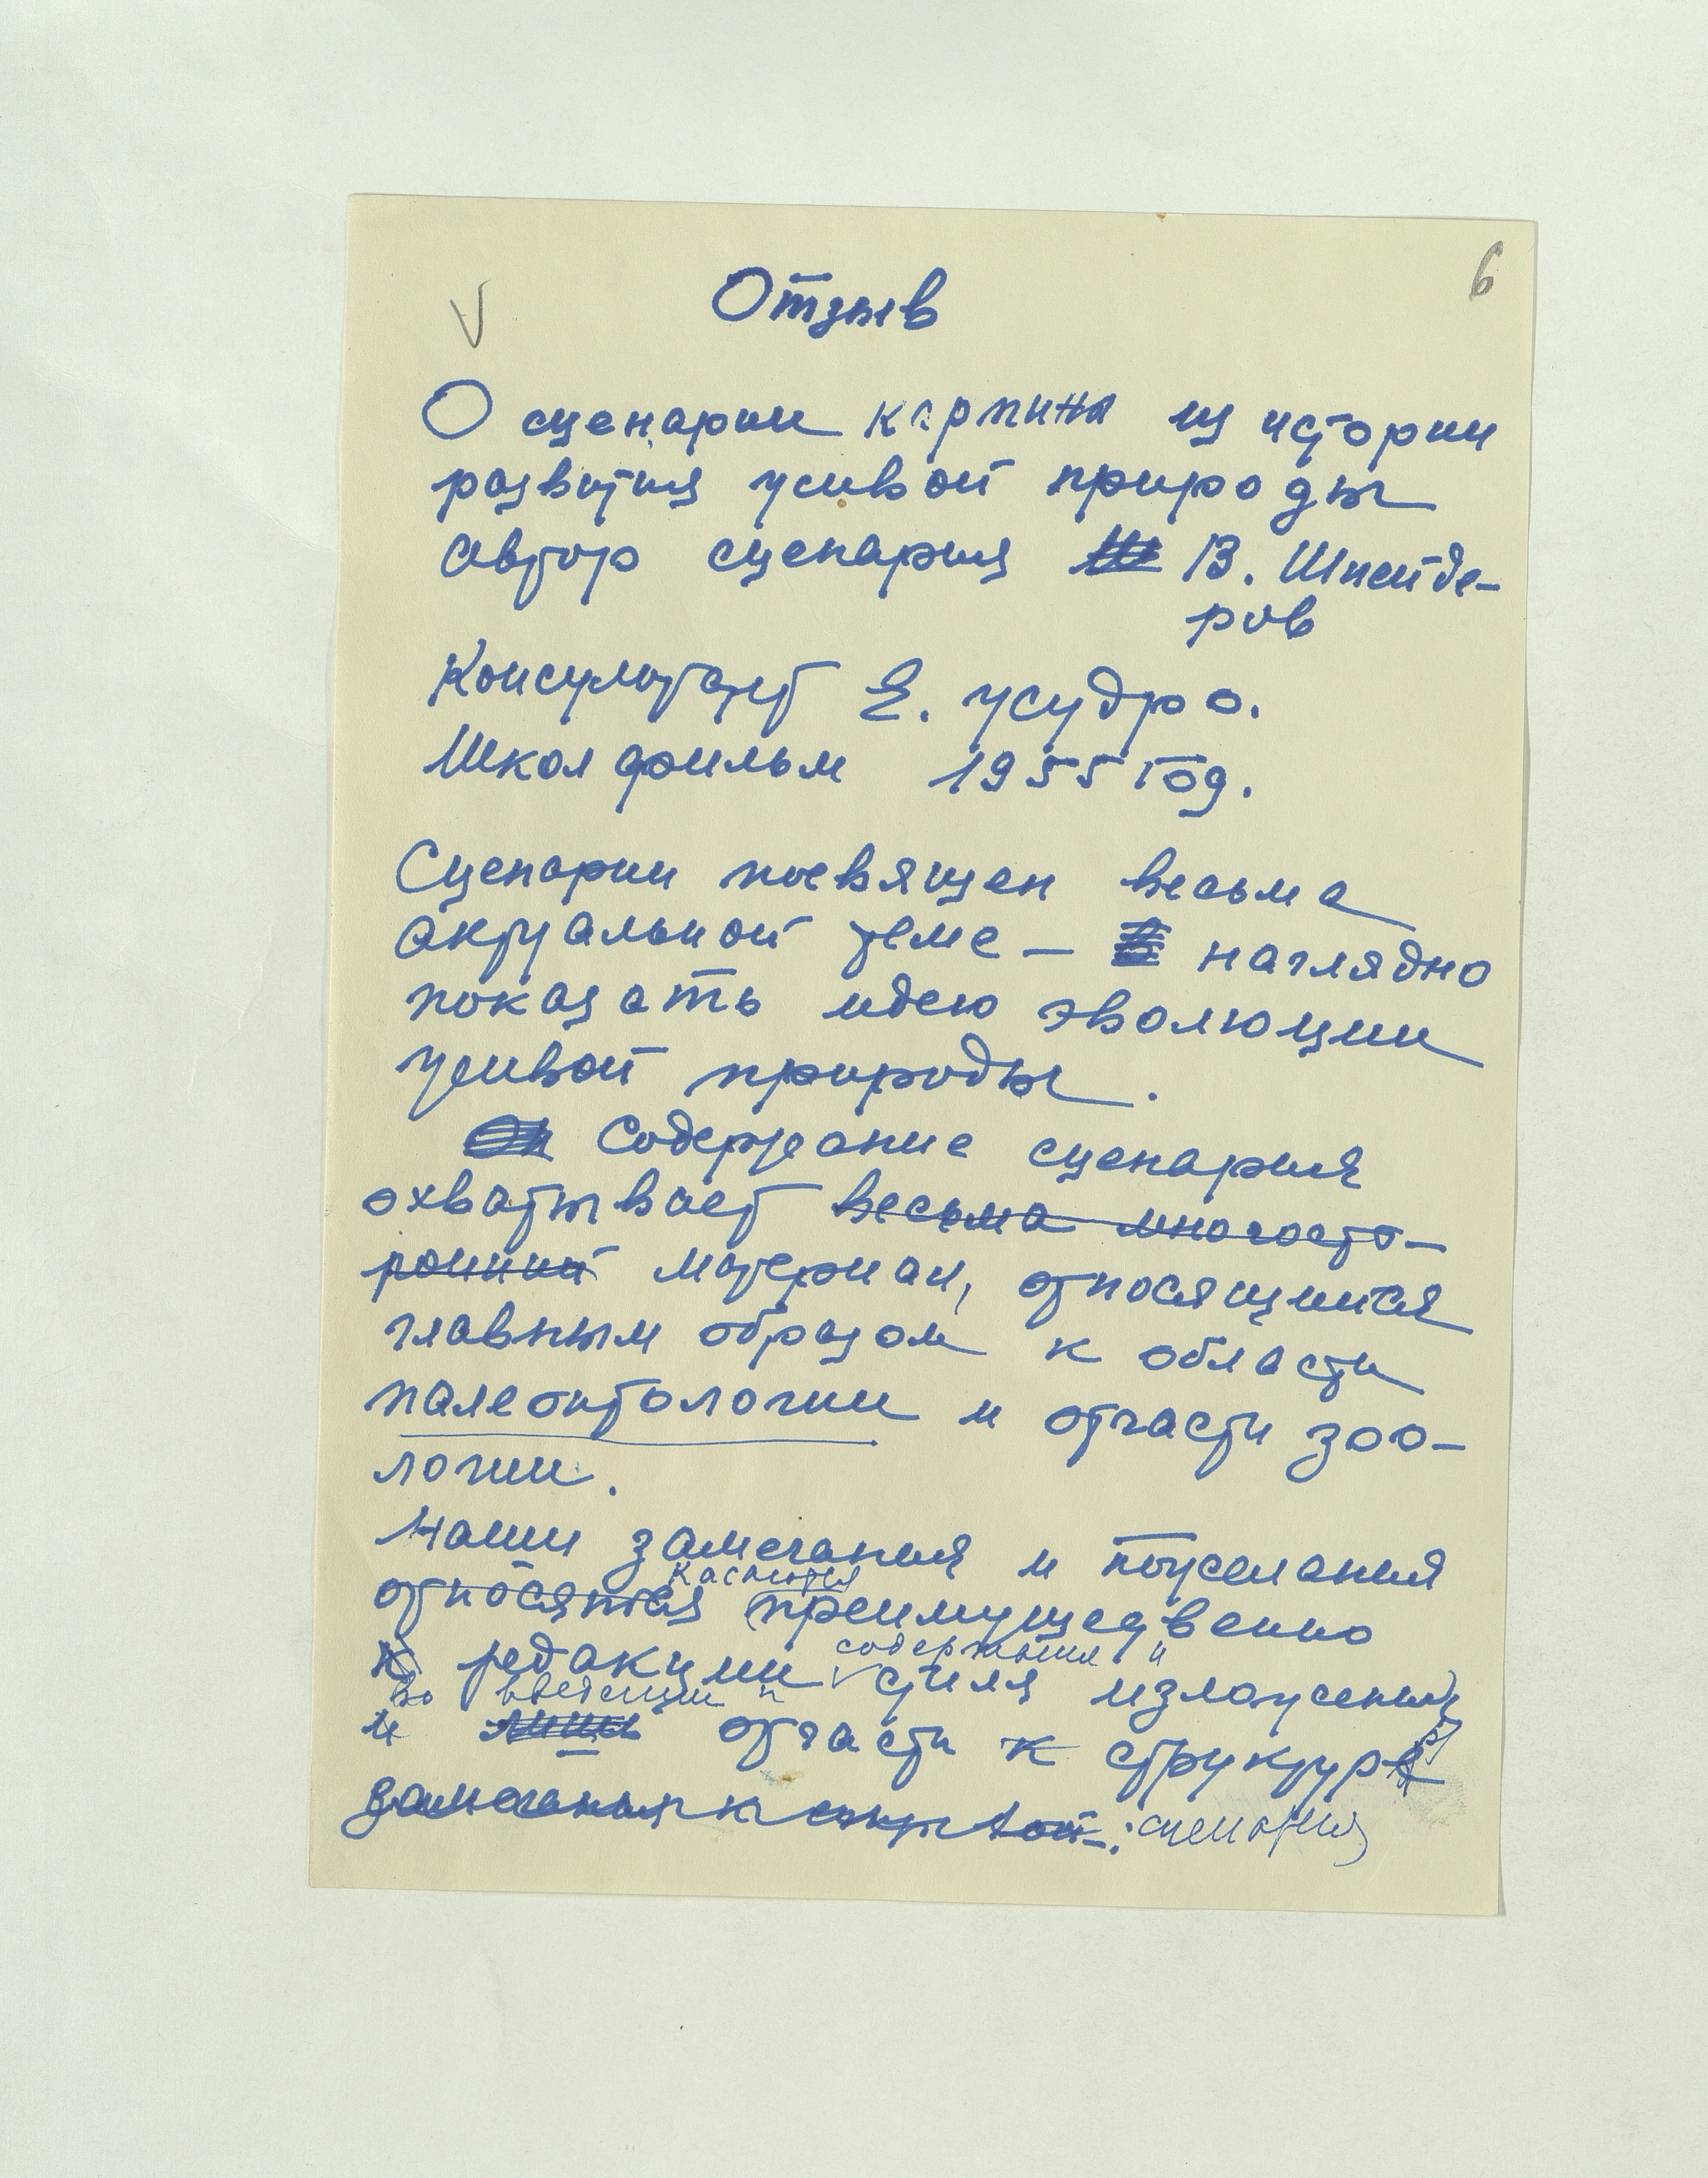 6
V
Отзыв
О сценарии картины из истории
развития живой природы
автор сценария В. Шнейде-
ров
Консультант Е. Жудро.
Школфильм 1955 год.
Сценарий посвящен весьма
актуальной теме — наглядно
показать идею эволюции
живой природы.
Содержание сценария
охватывает весьма многосто-
ронний материал, относящийся
главным образом к области
палеонтологии и отчасти зоо-
логии.
Наши замечания и пожелания
касаются
относятся преимущественно
содержания и
к редакции стиля изложения
во введении и
и лишь отчасти к структуре
замечания к сценария